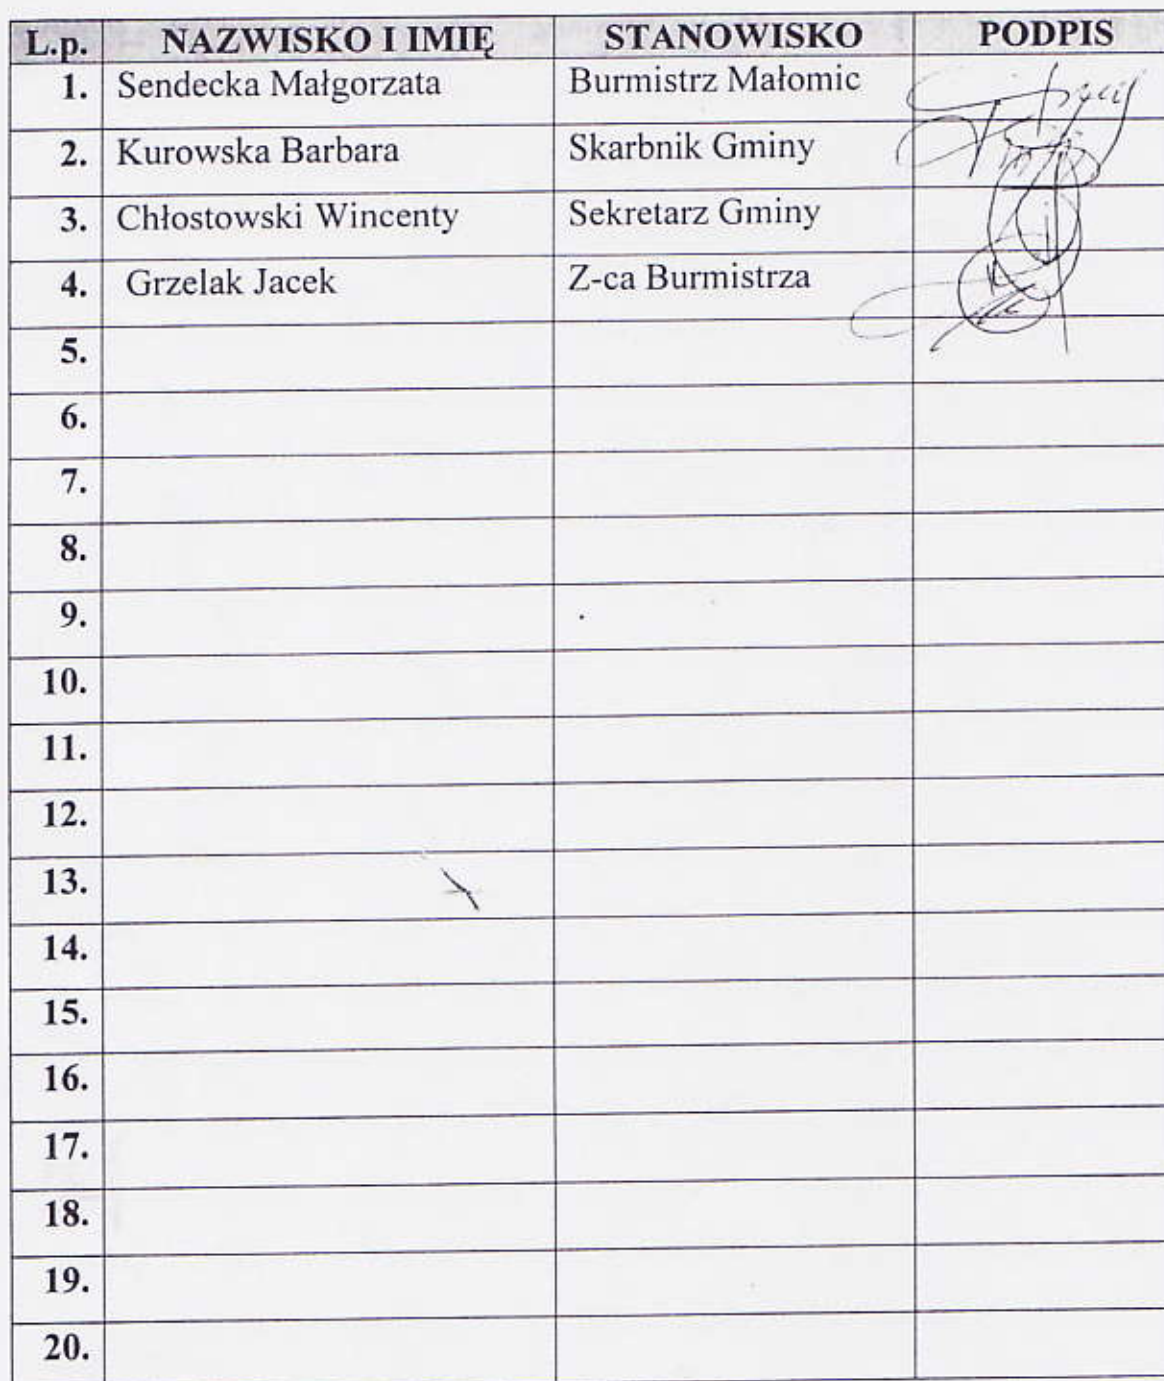 L.p. NAZWISKO I IMIĘ STANOWISKO PODPIS
1. Sendecka Małgorzata Burmistrz Małomic
2. Kurowska Barbara Skarbnik Gminy
3. Chłostowski Wincenty Sekretarz Gminy
4. Grzelak Jacek Z-ca Burmistrza
5.
6.
7.
8.
9.
10.
11.
12.
13.
14.
15.
16.
17.
18.
19.
20.